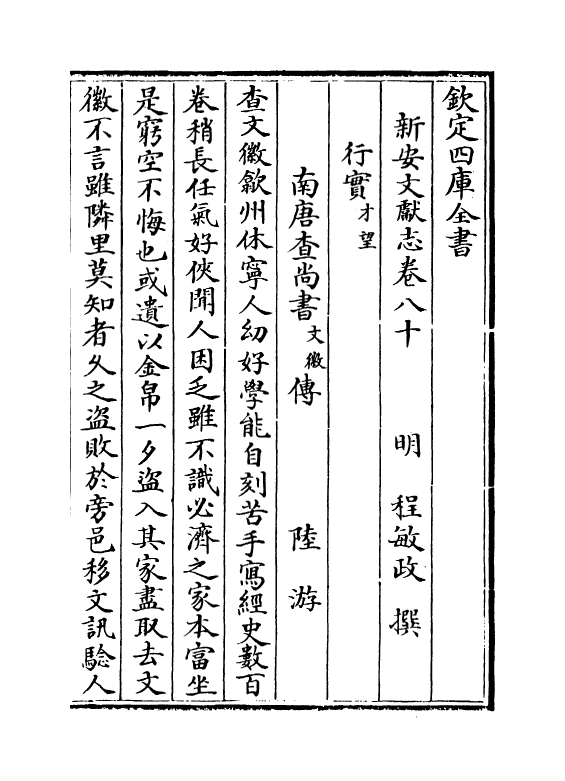 欽定四庫全書
新安文獻志卷八十　明　程敏政　撰
行實才望
南唐查尚書文徽傳　陸游
查文徽歙州休寧人幼好學能自刻苦手寫經史數百
卷稍長任氣好俠聞人困乏雖不識必濟之家本富坐
是窮空不悔也或遺以金帛一夕盜入其家盡取去文
徽不言雖隣里莫知者久之盜敗於旁邑移文訊驗人